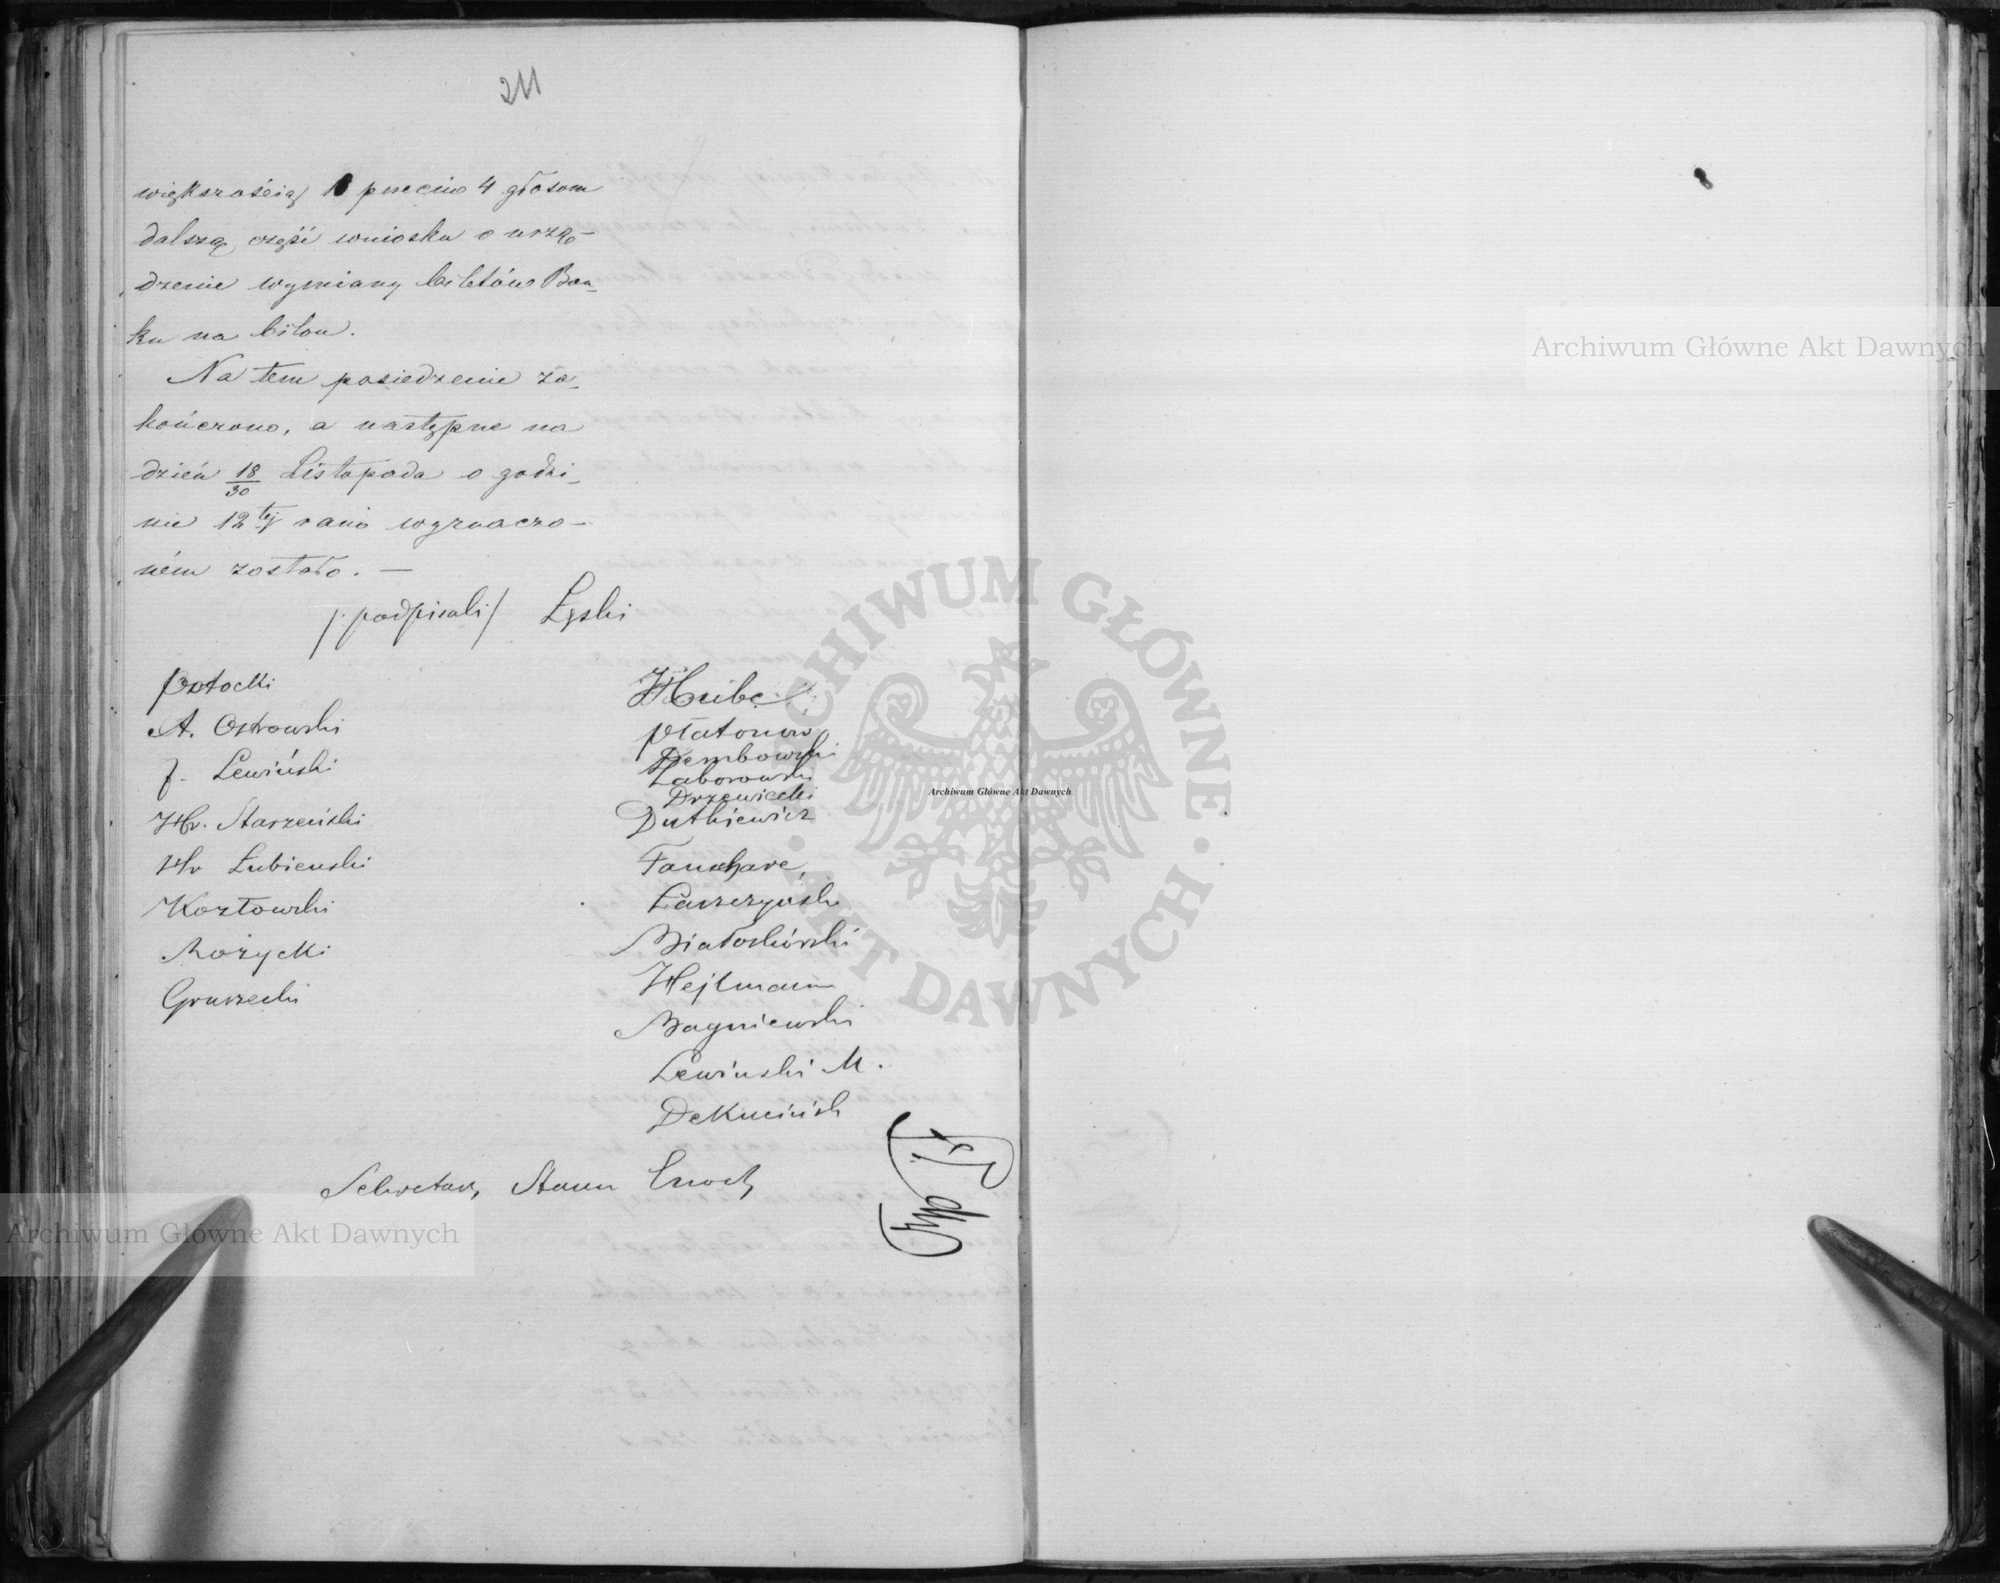 211
większością 10 przeciw 4 głosom
dalszą część wniosku o urzą-
dzenie wymiany biletów Ban-
ku na bilon.
Na tem posiedzenie za-
kończono, a następne na
dzień 18/30 Listopada o godzi-
nie 12tej rano wyznaczo-
ném zostało. —
/: podpisali / Łęski
Potocki
A. Ostrowski
J. Lewiński
Hr. Starzeński
Hr Łubieński
Kozłowski
Różycki
Gruszecki
Hube
Płatonow
Dembowski
Zaborowski
Drzewiecki
Dutkiewicz
Fanshave,
Łaszczyński
Białoskórski
Hejlman
Bagniewski
Lewinski M.
De Kuciński
Sekretarz Stanu Enoch
Archiwum Główne Akt Dawnych
Archiwum Główne Akt Dawnych
Archiwum Główne Akt Dawnych
ARCHIWUM GŁÓWNE AKT DAWNYCH